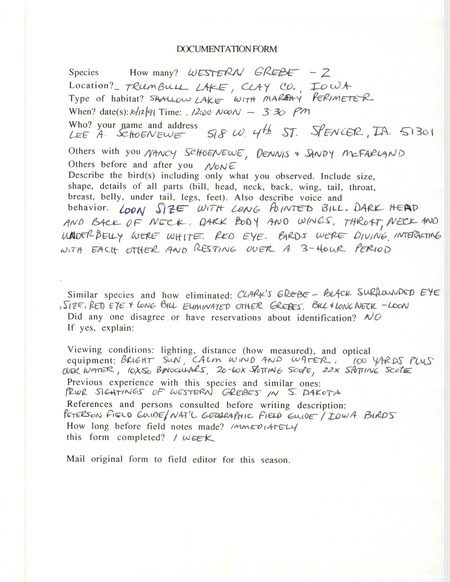 DOCUMENTATION FORM
Species How many? WESTERN GREBE - 2
Location? TRUMBULL LAKE, CLAY CO., IOWA
Type of habitat? SHALLOW LAKE WITH MARSHY PERIMETER
When? date(s): 10/12/91 Time: 12:00 NOON - 3:30 PM
Who? your name and address
LEE A. SCHOENEWE 518 W 4th ST. SPENCER, IA. 51301
Others with you NANCY SCHOENEWE, DENNIS + SANDY McFARLAND
Others before and after you NONE
Describe the bird(s) including only what you observed. Include size,
shape, details of all parts (bill, head, neck, back, wing, tail, throat,
breast, belly, under tail, legs, feet). Also describe voice and
behavior. LOON SIZE WITH LONG POINTED BILL. DARK HEAD
AND BACK OF NECK. DARK BODY AND WINGS. THROAT, NECK AND
UNDERBELLY WERE WHITE. RED EYE. BIRDS WERE DIVING, INTERACTING
WITH EACH OTHER AND RESTING OVER A 3-HOUR PERIOD
Similar species and how eliminated: CLARK'S GREBE - BLACK SURROUNDED EYE
.SIZE, RED EYE + LONG BILL ELIMINATED OTHER GREBES. BILL + LONG NECK - LOON
Did any one disagree or have reservations about identification? NO
If yes, explain:
Viewing conditions: lighting, distance (how measured), and optical
equipment: BRIGHT SUN, CALM WIND AND WATER. 100 YARDS PLUS
OVER WATER, 10X50 BINOCULARS, 20-60X SPOTTING SCOPE, 22X SPOTTING SCOPE
Previous experience with this species and similar ones:
PRIOR SIGHTINGS OF WESTERN GREBES IN S. DAKOTA
References and persons consulted before writing description:
PETERSON FIELD GUIDE/NAT'L GEOGRAPHIC FIELD GUIDE/IOWA BIRDS
How long before field notes made? IMMEDIATELY
this form completed? 1 WEEK
Mail original form to field editor for this season.